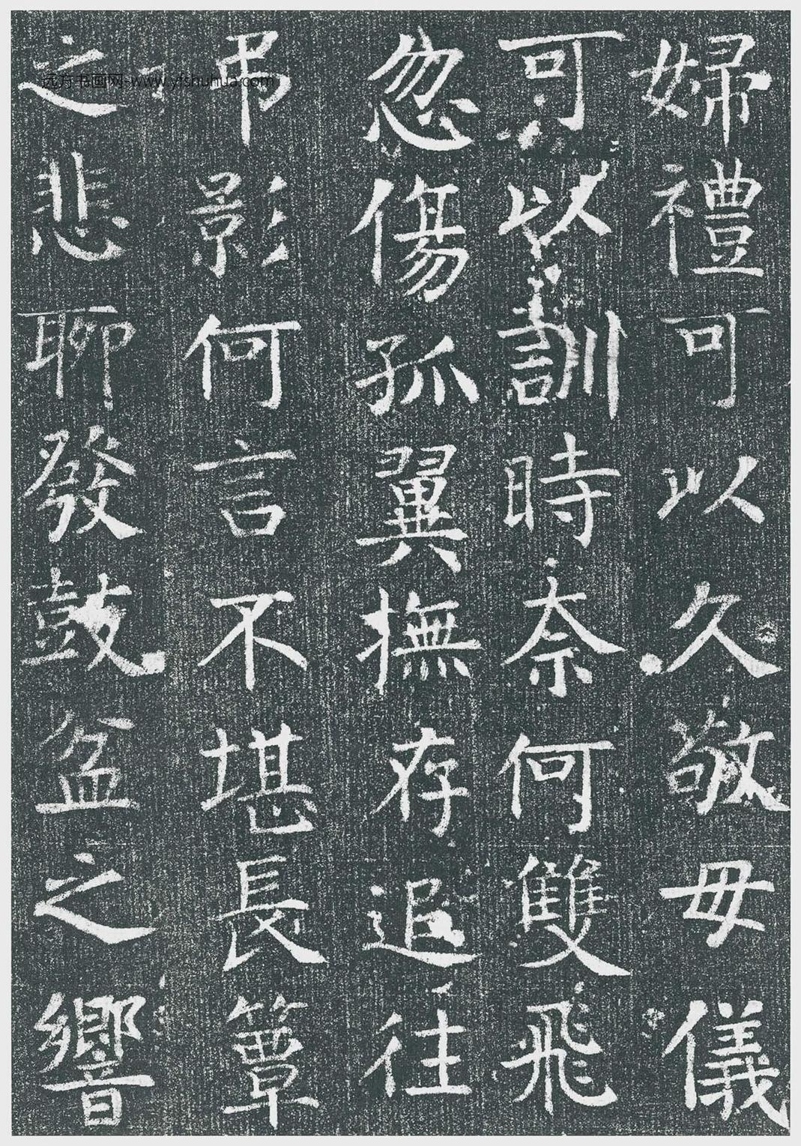 婦禮可以久敬毋儀
可以訓時奈何雙飛
忽傷孤翼撫存追往
弔影何言不堪長簟
之悲聊發鼓盆之響
远方书画网-www.yfshuhua.com